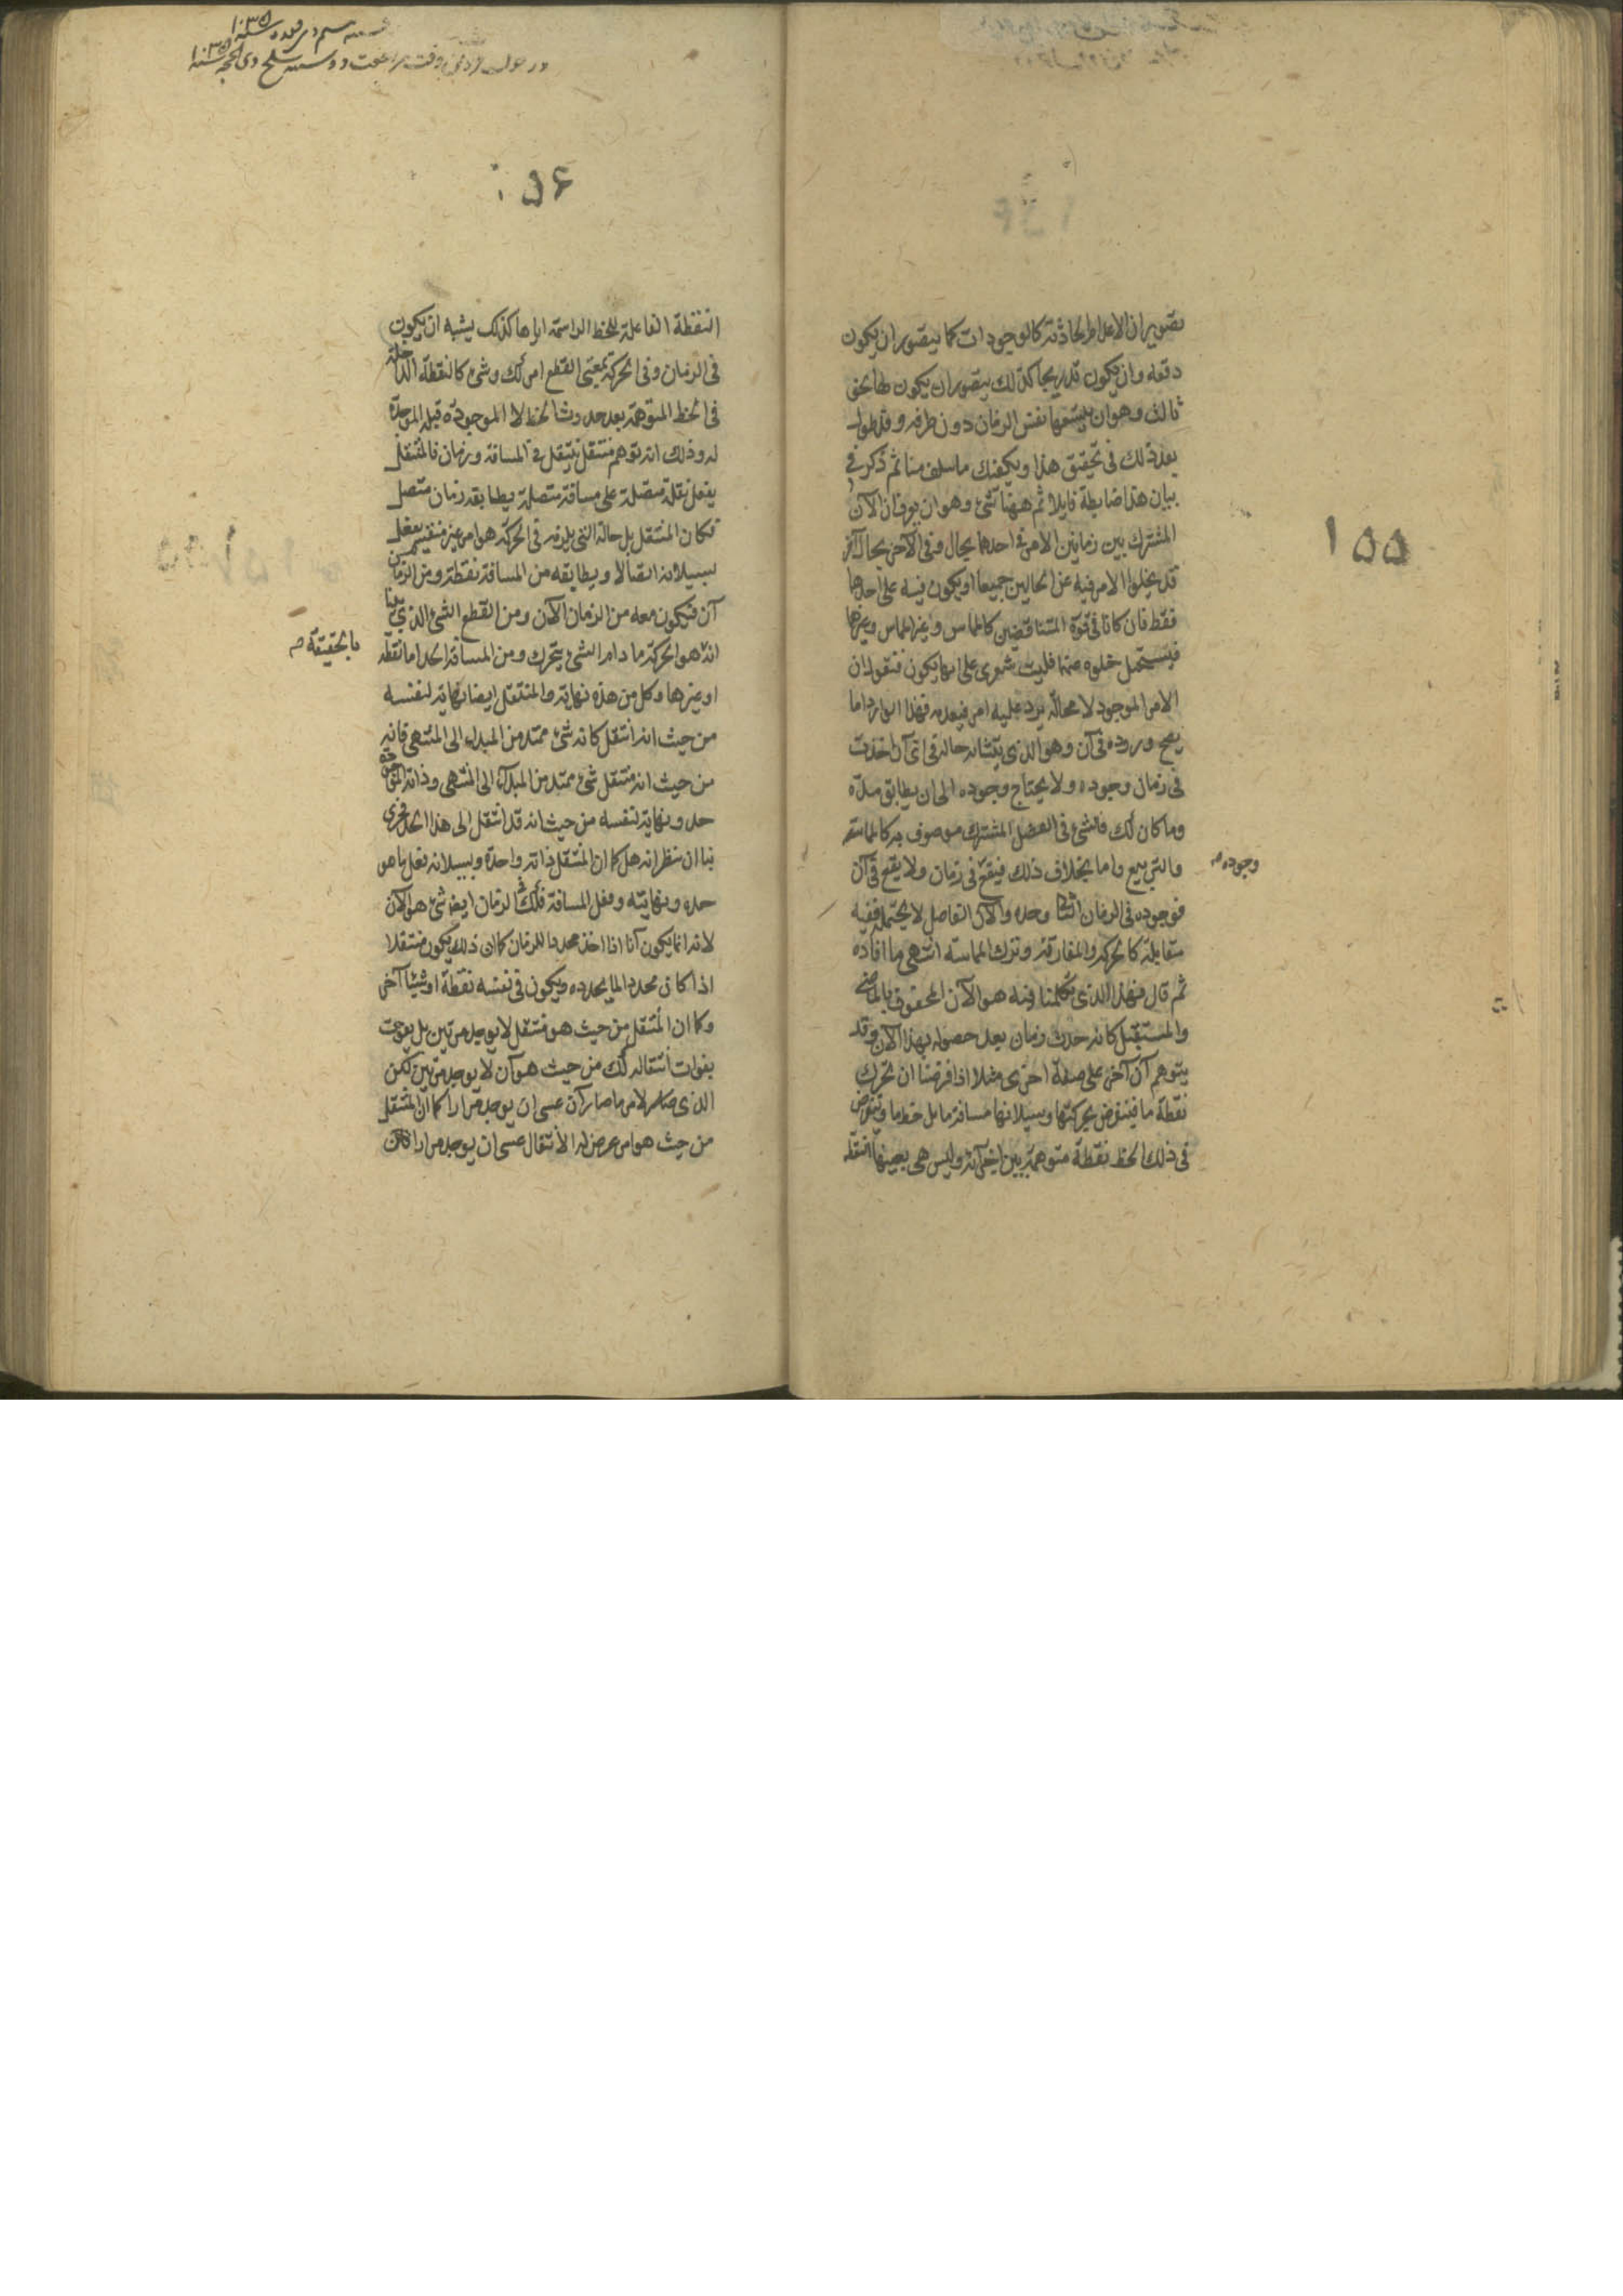 ١٥٥
تصوير ان الاعدام الحادثة كالوجودات كما يتصور ان يكون
دفعه وان يكون تدريجا كذلك يتصور ان يكون لها نحو
ثالث وهو ان يسعها نفس الزمان دون طرفه وقد طول
بعد ذلك في تحقيق هذا ويكفيك ما سلف منا ثم ذكر في
بيان هذا ضابطة قايلا ثم ههنا شئ وهو ان يعرف ان الآن
المشترك بين زمانين الامر في احدهما بحال وفي الآخر بحال آخر
قد يخلوا الامر فيه عن الحالين جميعا او يكون فيه على احدها
فقط فان كانا في قوة المتناقضين كالمماس وغير المماس وغيرها
فيستحيل خلوه عنهما فليت شعري على ايها يكون فنقول ان
الامر الموجود لا محالة يرد عليه امر فيعدمه فهذا الوارد اما
يصح وروده في آن وهو الذي يتشابه حاله في اى آن اخذت
في زمان وجوده ولا يحتاج وجوده الى ان يطابق مدة
وما كان كك فالشئ في الفصل المشترك موصوف به كالمماسة
والتربيع واما بخلاف ذلك فيقع في زمان ولا يقع في آن
وجوده
فوجوده في الزمان الثانى وحده والآن الفاصل لا يحتمله ففيه
مقابلة كالحركة والمفارقة وترك المماسة انتهى ما افاده
ثم قال فهذا الذي تكلمنا فيه هو الآن المحفوف بالماضي
والمستقبل كانه حدث زمان بعد حصوله بهذا الآن وقد
يتوهم آن آخر على صفة اخرى مثلا اذا فرضنا ان تحرك
نقطة ما فيفرض بحركتها وسيلانها مسافة ما بل خط ما وتفرض
في ذلك الخط نقطة متوهمة بين اجزائه وليس هي بعينها النقطه
شنبه سلم ذي قعده سنه ١٠٣٥
وقت مراجعت دوشنبه سلخ ذي الحجه سنه ١٠٣٥
١٥٤
النقطة الفاعلة للخط الراسمة اياها كذلك يشبه ان يكون
في الزمان وفي الحركة بمعنى القطع امر كك وشئ كالنقطة الداخلة
في الخط المتوهمة بعد حدوث الخط لا الموجودة قبله الموجدة
له وذلك انه يتوهم منتقل ينتقل في المسافة وزمان فالمنتقل
يفعل نقلة متصلة على مسافة متصلة يطابقه زمان متصل
فكان المنتقل بل حالته التي يلزمه في الحركة هو امر غير منقسم يفعل
بسيلانه اتصالا ويطابقه من المسافة نقطة ومن الزمان
آن فيكون معه من الزمان الآن ومن القطع الشئ الذي بينا
انه هو الحركة ما دام الشئ يتحرك ومن المسافة الحد اما نقطة
بالحقيقة
او غيرها وكل من هذه نهاية والمنتقل ايضا نهاية لنفسه
من حيث انه انتقل كانه شئ ممتد من المبدء الى المنتهى فانه
من حيث انه منتقل شئ ممتد من المبدء الى المنتهى وذاته
حد ونهاية لنفسه من حيث انه قد انتقل الى هذا الحد فحرى
بنا ان ننظر انه هل كما ان المنتقل ذاته واحدة وبسيلانه يفعل ما هو
حده ونهايته وفعل المسافة فكك في الزمان ايضا شئ هو الآن
لانه انما يكون آنا اذا اخذ محددا للزمان كما ان ذلك يكون منتقلا
اذا كان محددا لما يحدده ويكون في نفسه نقطة او شيئا آخر
وكما ان المنتقل من حيث هو منتقل لا يوجد مرتين بل يفوت
بفوات انتقاله كك من حيث هو آن لا يوجد مرتين لكن
الذي لامر ما صار آن عسى ان يوجد مرارا كما ان المنتقل
من حيث هو امر عرض له الانتقال عسى ان يوجد مرارا فان كان